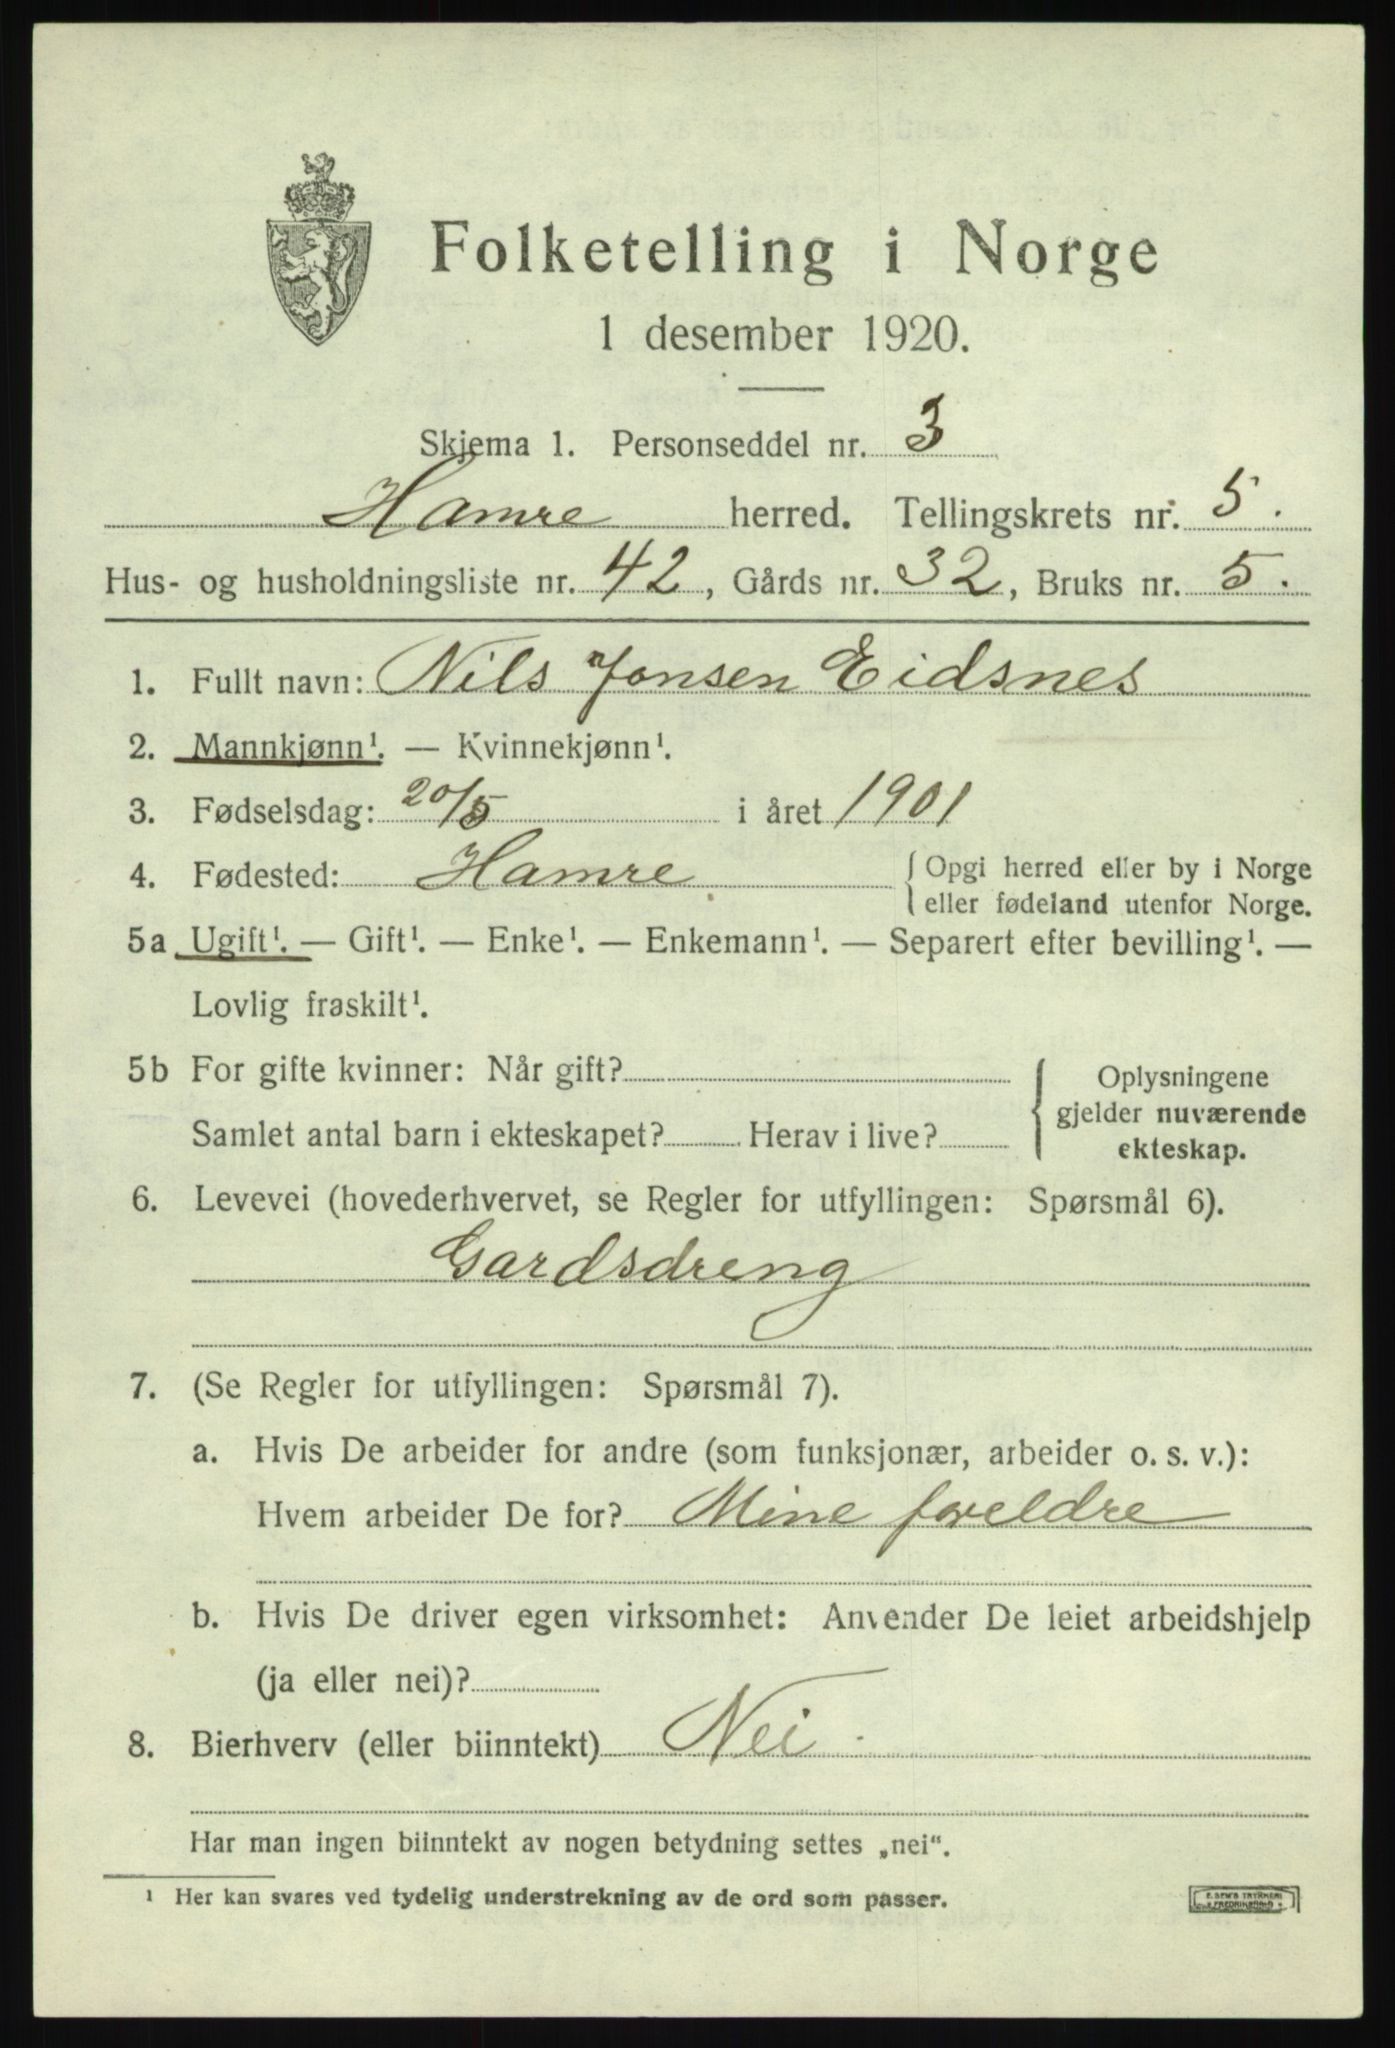 Folketelling i Norge
1 desember 1920.
Skjema 1. Personseddel nr. 3
Hamre herred. Tellingskrets nr. 5.
Hus- og husholdningsliste nr. 42, Gårds nr. 32, Bruks nr. 5.
1. Fullt navn: Nils Jonsen Eidsnes
2. Mannkjønn¹. — Kvinnekjønn¹.
3. Fødselsdag: 20/5 i året 1901
4. Fødested: Hamre { Opgi herred eller by i Norge
eller fødeland utenfor Norge.
5a Ugift¹. — Gift¹. — Enke¹. — Enkemann¹. — Separert efter bevilling¹. —
Lovlig fraskilt¹.
5b For gifte kvinner: Når gift?
Samlet antal barn i ekteskapet? Herav i live?
{ Oplysningene
gjelder nuværende
ekteskap.
6. Levevei (hovederhvervet, se Regler for utfyllingen: Spørsmål 6).
Gardsdreng
7. (Se Regler for utfyllingen: Spørsmål 7).
a. Hvis De arbeider for andre (som funksjonær, arbeider o. s. v.):
Hvem arbeider De for? Mine foreldre
b. Hvis De driver egen virksomhet: Anvender De leiet arbeidshjelp
(ja eller nei)?
8. Bierhverv (eller biinntekt) Nei
Har man ingen biinntekt av nogen betydning settes „nei".
¹ Her kan svares ved tydelig understrekning av de ord som passer.